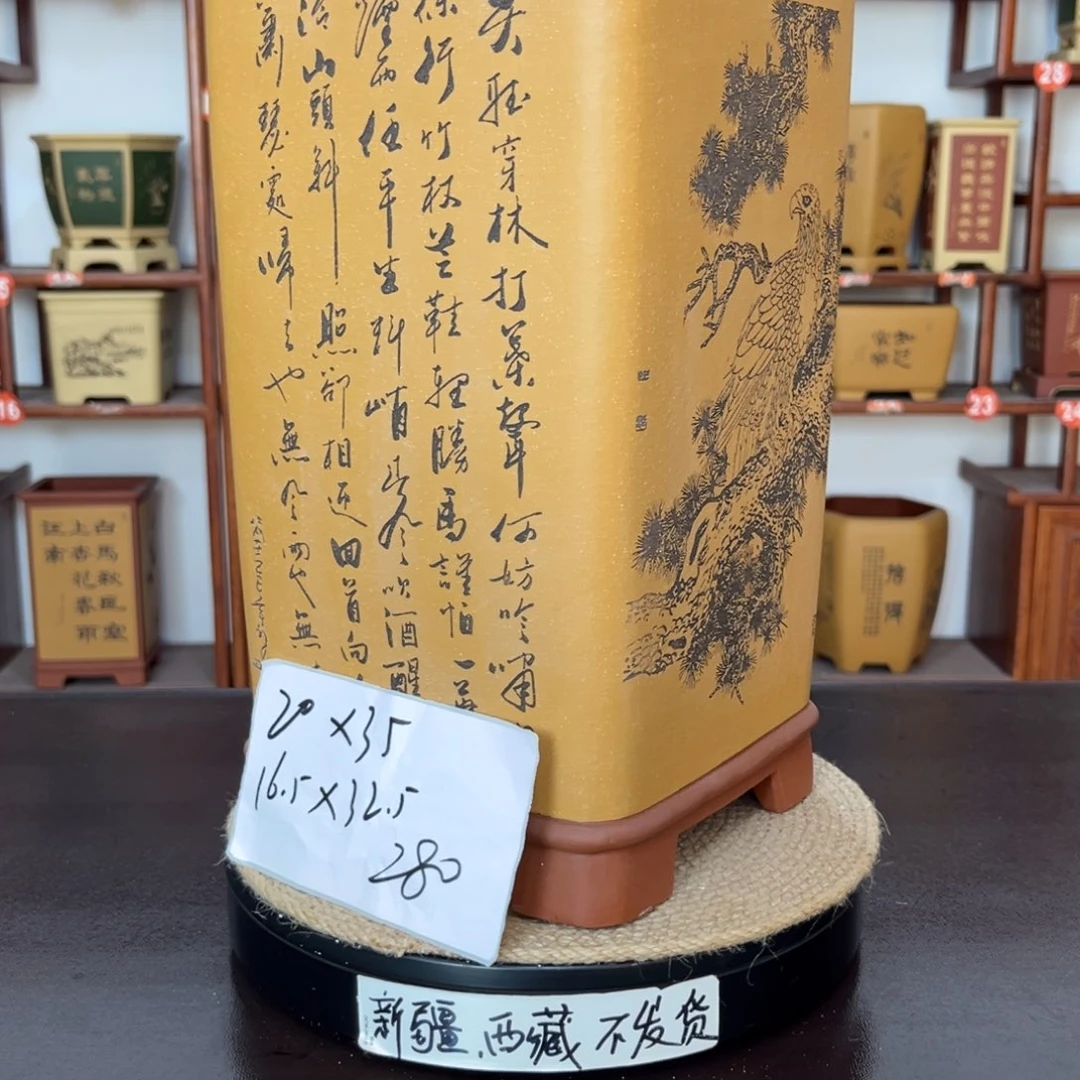 莫聽穿林打葉聲何妨吟嘯
徐行竹杖芒鞋輕勝馬誰怕一蓑
煙雨任平生料峭春風吹酒醒
冷山頭斜照卻相迎回首向
蕭瑟處歸去也無風雨也無
20×35
16.5×32.5
280
新疆.西藏不发货
白馬秋風塞
上杏花春雨
江南
28
23
24
16